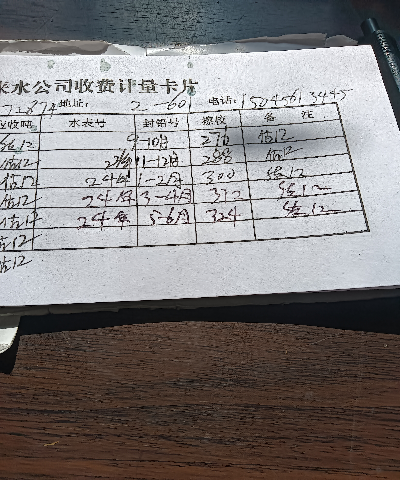 来水公司收费计量卡片
72874 地址: 2-601 电话: 15045613445
应收吨 水表号 封铅号 擦收 备 注
估12 9-10月 276 估12
估12 11-12月 288 估12
估12 24年 1-2月 300 估12
估12 24年 3-4月 312 估12
估12 24年 5-6月 324 估12
估12
估12